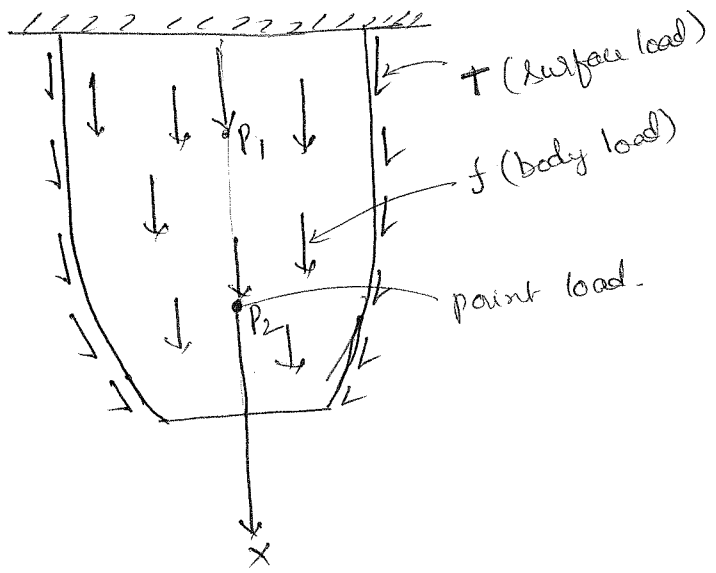 T (surface load)
P1
f (body load)
P2
point load.
X